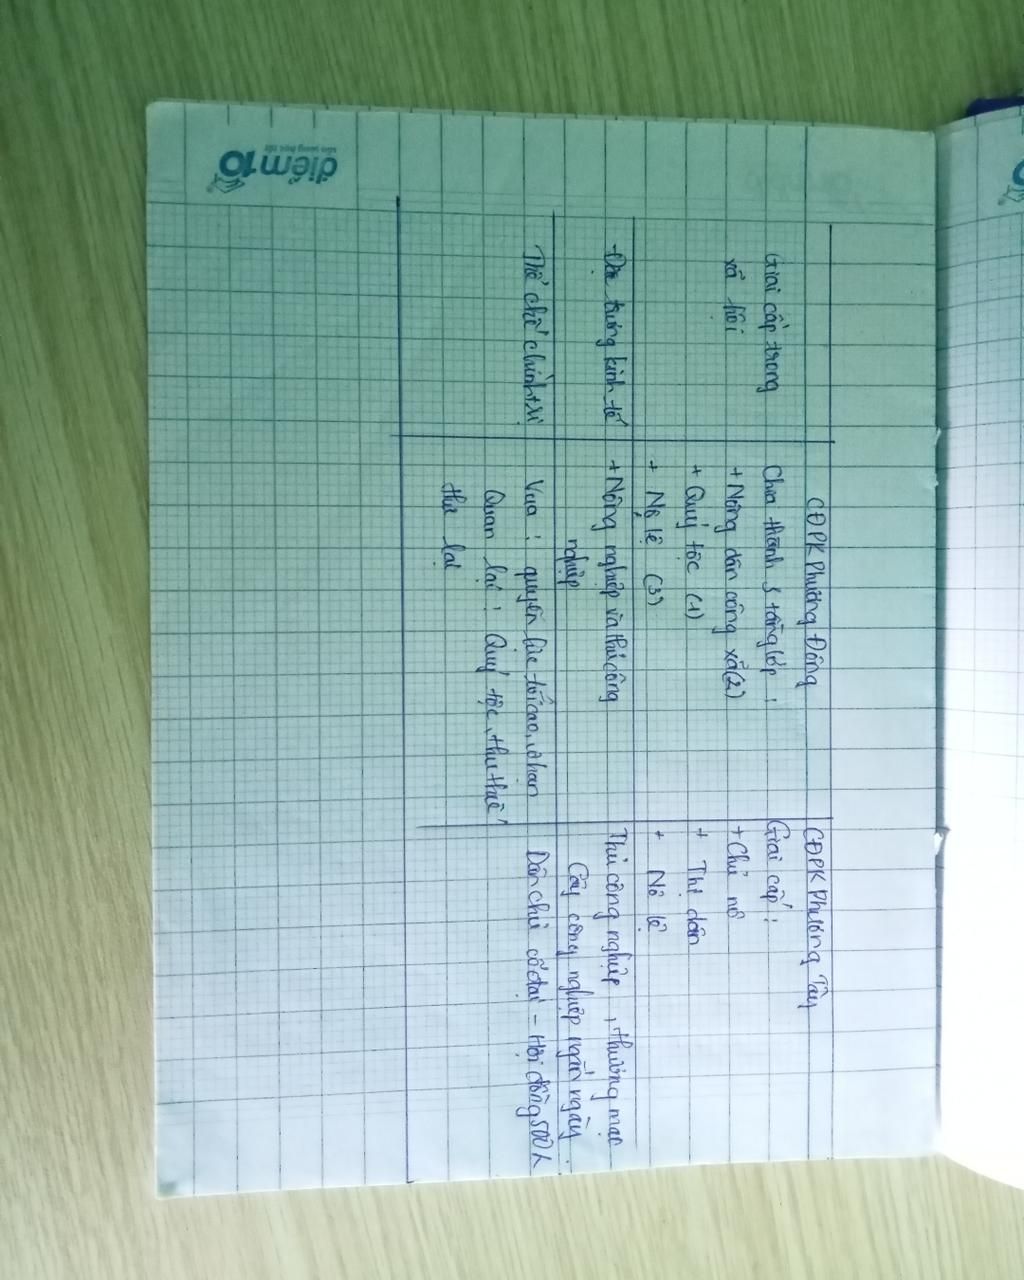 điểm10
sẵn sàng học tốt
CĐPK Phương Đông
CĐPK Phương Tây
Giai cấp trong
xã hội
Chia thành 3 tầng lớp :
+ Nông dân công xã (2)
+ Quý tộc (1)
+ Nô lệ (3)
Giai cấp :
+ Chủ nô
+ Thị dân
+ Nô lệ
Đặc trưng kinh tế
+ Nông nghiệp và thủ công
nghiệp
Thủ công nghiệp , thương mại
Cây công nghiệp ngắn ngày
Thể chế chính trị
Vua : quyền lực tối cao, vô hạn
Quan lại : Quý tộc, thu thuế
thư lại
Dân chủ cổ đại - Hội đồng 500